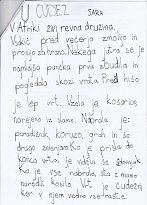 ČUDEŽ SARA
V Afriki živi revna družina.
Vsakič pred večerjo zmolijo in
prosijo za hrano. Nekega jutra se je
najmlajša punčka prva zbudila in
pogledala skozi vrata. Pred hišo
je lep vrt. Vzela je košarico,
narejeno iz slame. Nabrala je:
paradižnik, koruzo, grah in še
drugo zelenjavo. Ko je prišla do
konca vrta, je videla še
Ko je vse nabrala, sta z mamo
naredili kosilo. Vrt je čudežni
ker v njem vedno vse raste.